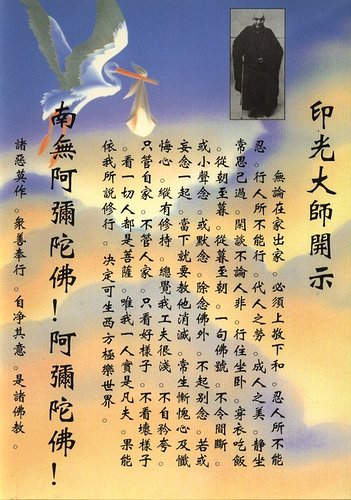 印光大師開示
無論在家出家。必須上敬下和。忍人所不能
忍。行人所不能行。代人之勞。成人之美。靜坐
常思己過。閑談不論人非。行住坐臥。穿衣吃飯
。從朝至暮。從暮至朝。一句佛號。不令間斷。
或小聲念。或默念。除念佛外。不起別念。若或
妄念一起。當下就要教他消滅。常生慚愧心及懺
悔心。縱有修持。總覺我工夫很淺。不自矜夸。
只管自家。不管人家。只看好樣子。不看壞樣子
。看一切人都是菩薩。唯我一人實是凡夫。果能
依我所說修行。決定可生西方極樂世界。
南無阿彌陀佛!阿彌陀佛!
諸惡莫作。衆善奉行。自淨其意。是諸佛教。